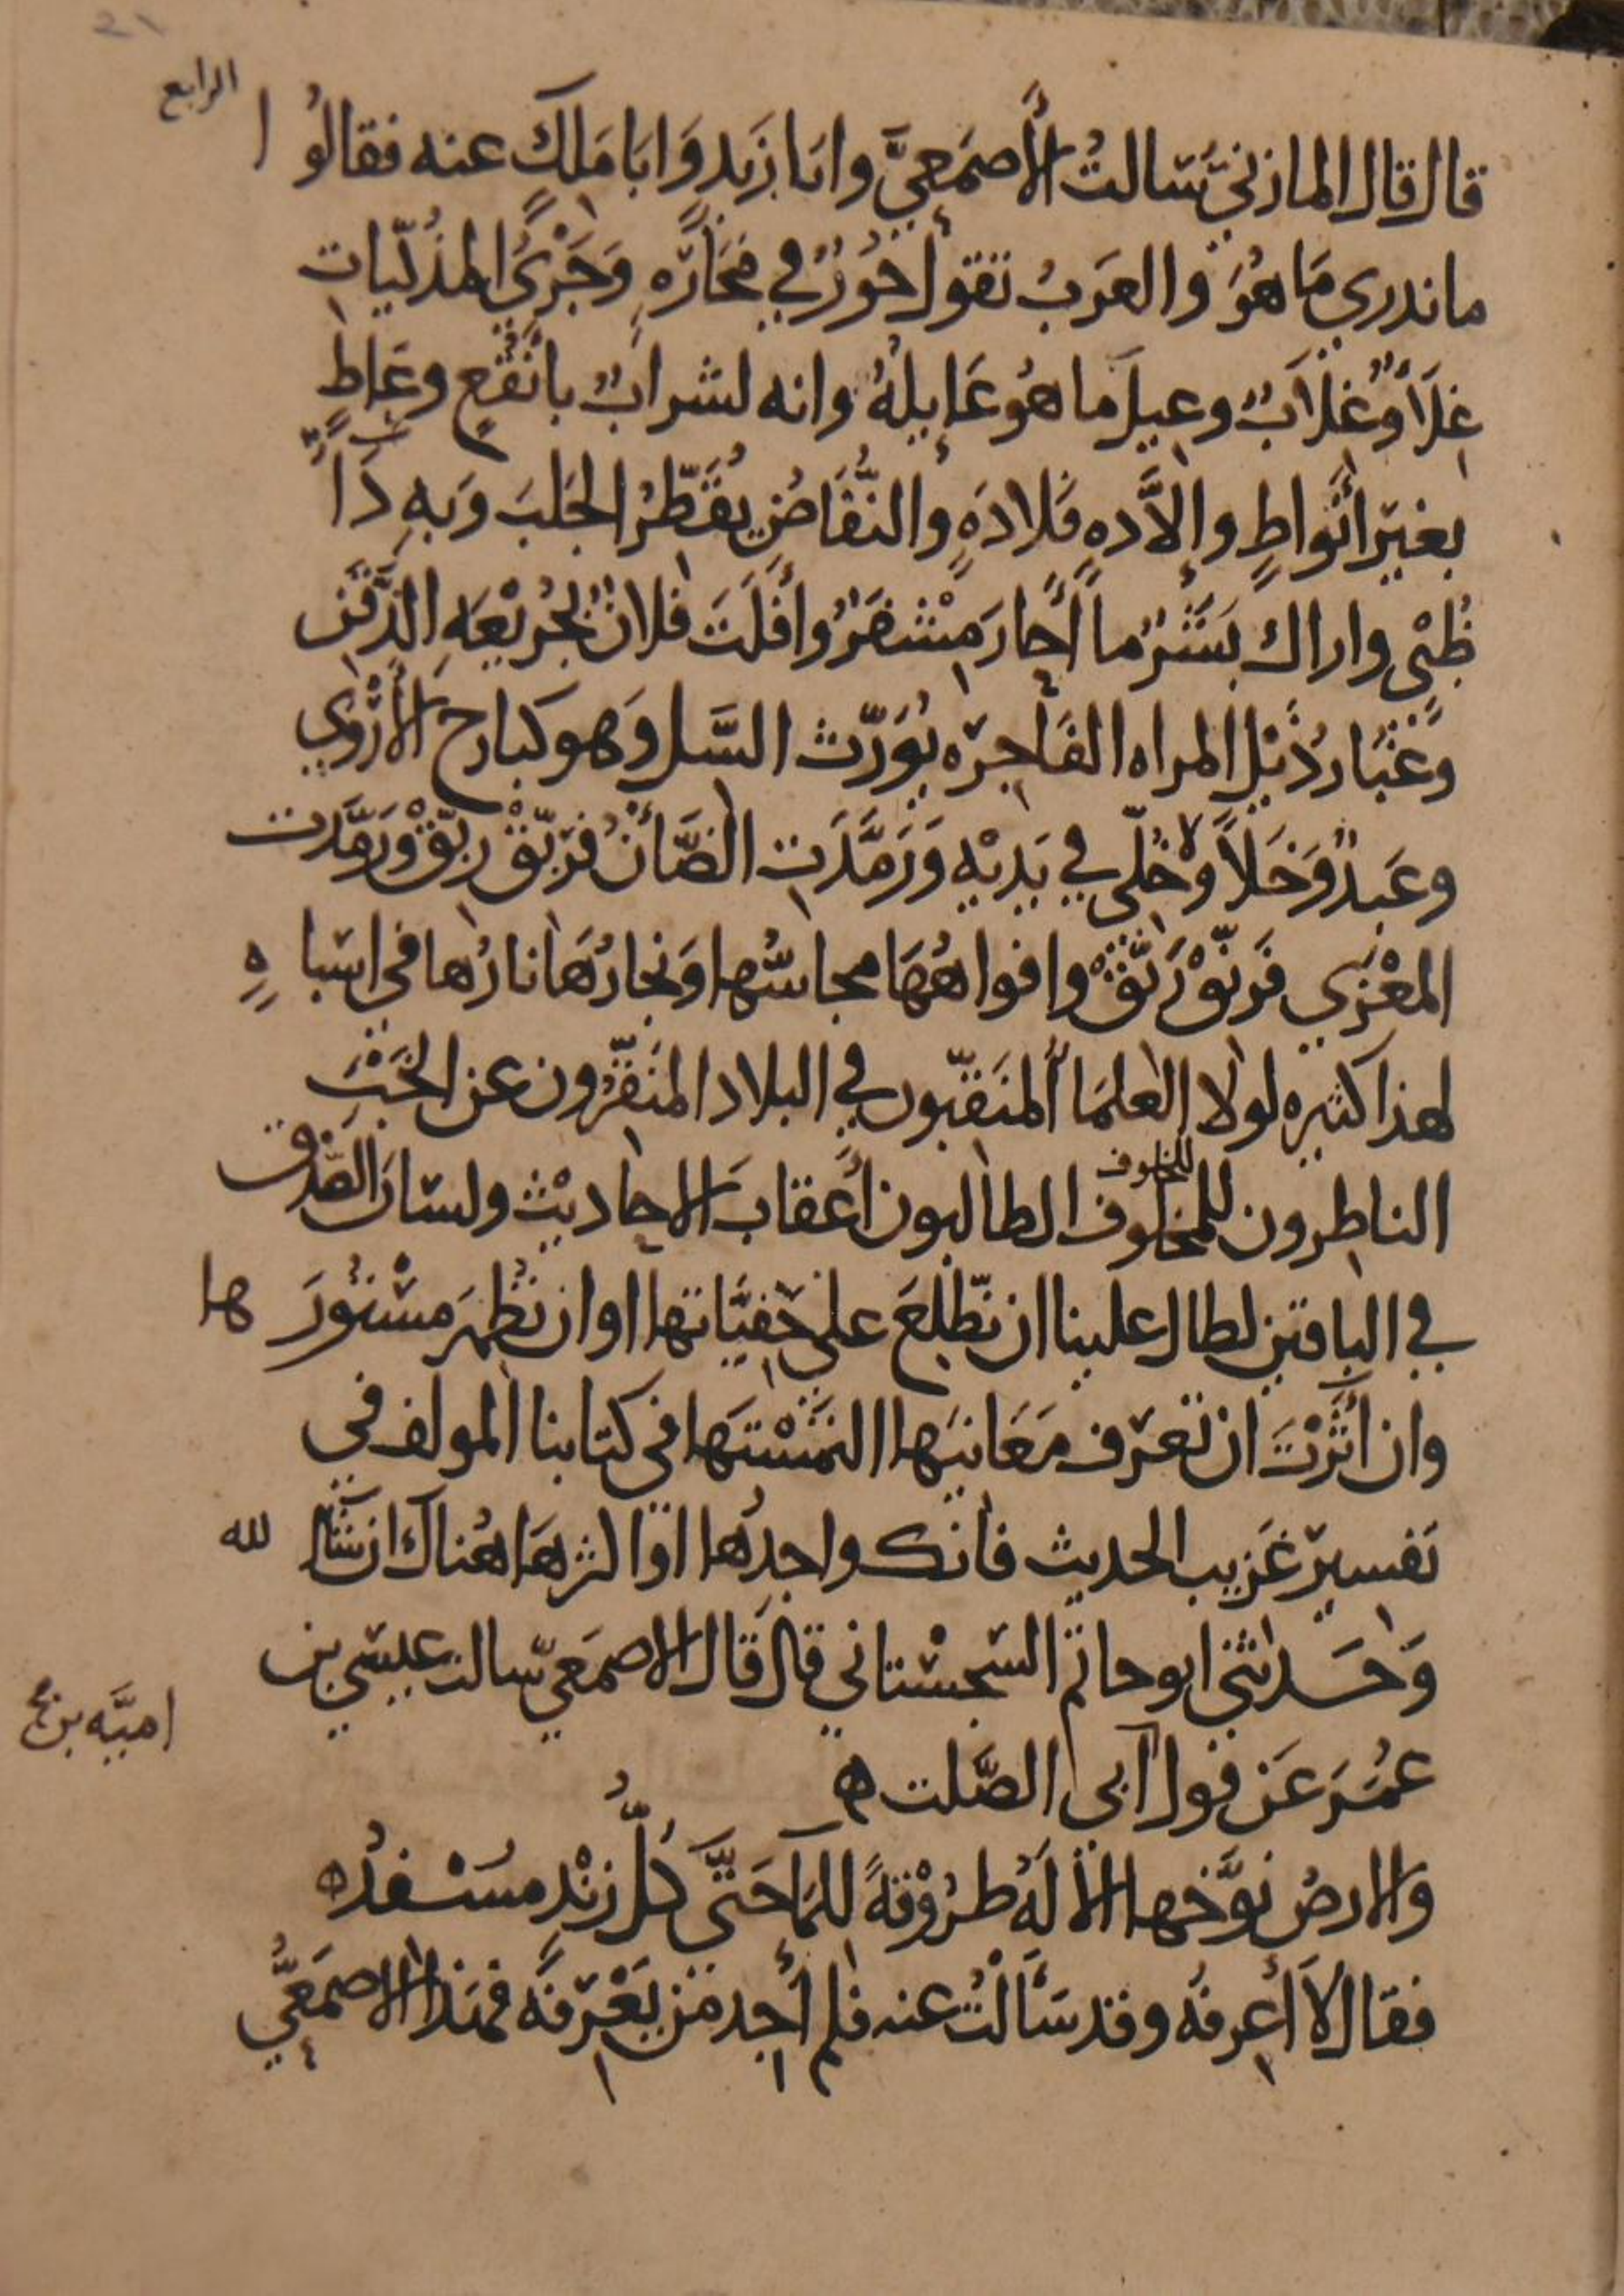 21
الرابع
قال قال المازنيّ سالتُ الأصمَعيَّ وابا زَيد وَابَا مَلكٍ عنه فقالوُا
ما ندري مَا هُوَ والعَربُ تقول حَوُرٌ في مَحَارَّهٍ وَجَرْيُ المذَلّيات
غِلَاءٌ وُغلَابٌ وعيلَ ما هُو عَايلهُ وانه لشرابٌ بانَقُعٍ وعَاطٍ
بغيرِ أنَواطٍ والاَّده فلادَهٍ والنُّفَاضُ يُقَطّرُ الجَلبَ وَبهِ دَاُّ
ظبْيٍ واراك بَشَرٌ ما أحَارَ مِشْفَرٌ وأفلَتَ فلانٌ بُجرَيْعَهِ الذَّقَن
وَغبَارُ ذَيْلِ المراه الفَاجِرَه يُوَرّث السَّل وَهو كبارح الأرْوَي
وعَبدٌ وَخَلاً وَحُلّي في يَديْهِ وَرَمَّدَتِ الضَّأنُ فَربّقْ ربّقْ وَرمَّدت
المعْزَي فَرنّقْ رَنّقْ وافواهُهَا مجاسُّها وَنجارُهَا نارُها في اشباهٍ
لهذا كثيره لولا العلمَا المنَقّبون في البلاد المنَقّرون عن الخَبْءِ
الناظرون للخلوف
للخلوف
الطالبون أعقَابَ الاحاديث ولسَانَ الصّدق
في الباقين لطال علينا ان نطّلعَ علي خَفيَّاتها او ان نظهِرَ مسْتورَها
وان أثَرْتَ ان تعَرف مَعَانيَها التَمسْتَهَا في كتابنا المولف في
تفسير غَريب الحديث فانك واجِدُها او اكثرهَا هُناك ان شَا الله
وَحَدثني ابو حاتم السّجسْتاني قال قال الاصمَعيّ سالت عيسي بن
عمُرَ عَن قول
اميَّه بن
ابي الصَّلت ه
والارضُ نوَّخها الالَهُ طرُوْقةً للمَا حَتَّي كلُّ زنْدٍ مسْفدُه
فقال لاَ أعرفُه وقد سَألْتُ عنه فلم أجِد مَن يَعْرَفُه فهَذا الاصمَعيُّ